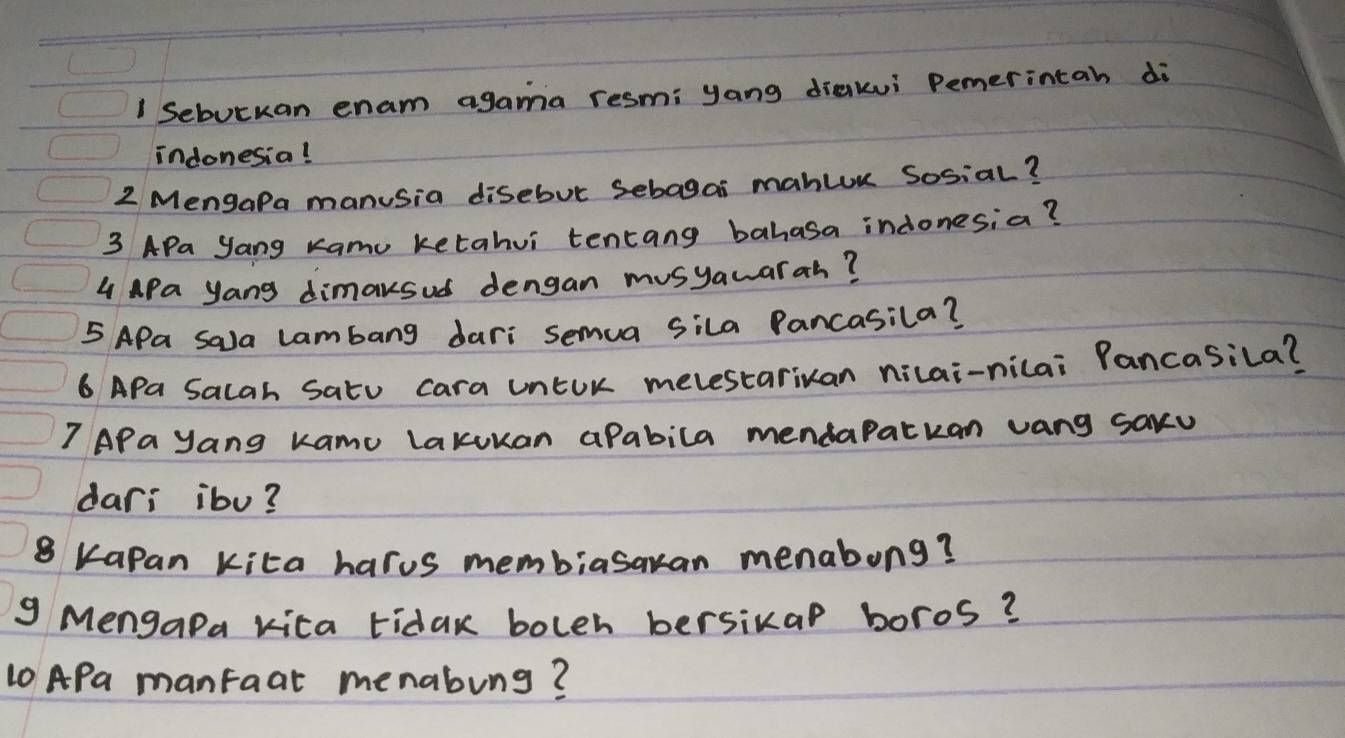 1 Sebutkan enam agama resmi yang diakui Pemerintah di
indonesia!
2 Mengapa manusia disebut sebagai mahluk Sosial?
3 Apa yang kamu ketahui tentang bahasa indonesia?
4 Apa yang dimaksud dengan musyawarah?
5 Apa saja lambang dari semua sila Pancasila?
6 Apa Salah Satu cara untuk melestarikan nilai-nilai Pancasila?
7 Apa yang kamu lakukan apabila mendapatkan uang saku
dari ibu?
8 Kapan kita harus membiasakan menabung?
9 Mengapa kita tidak boleh bersikap boros?
10 Apa manfaat menabung?